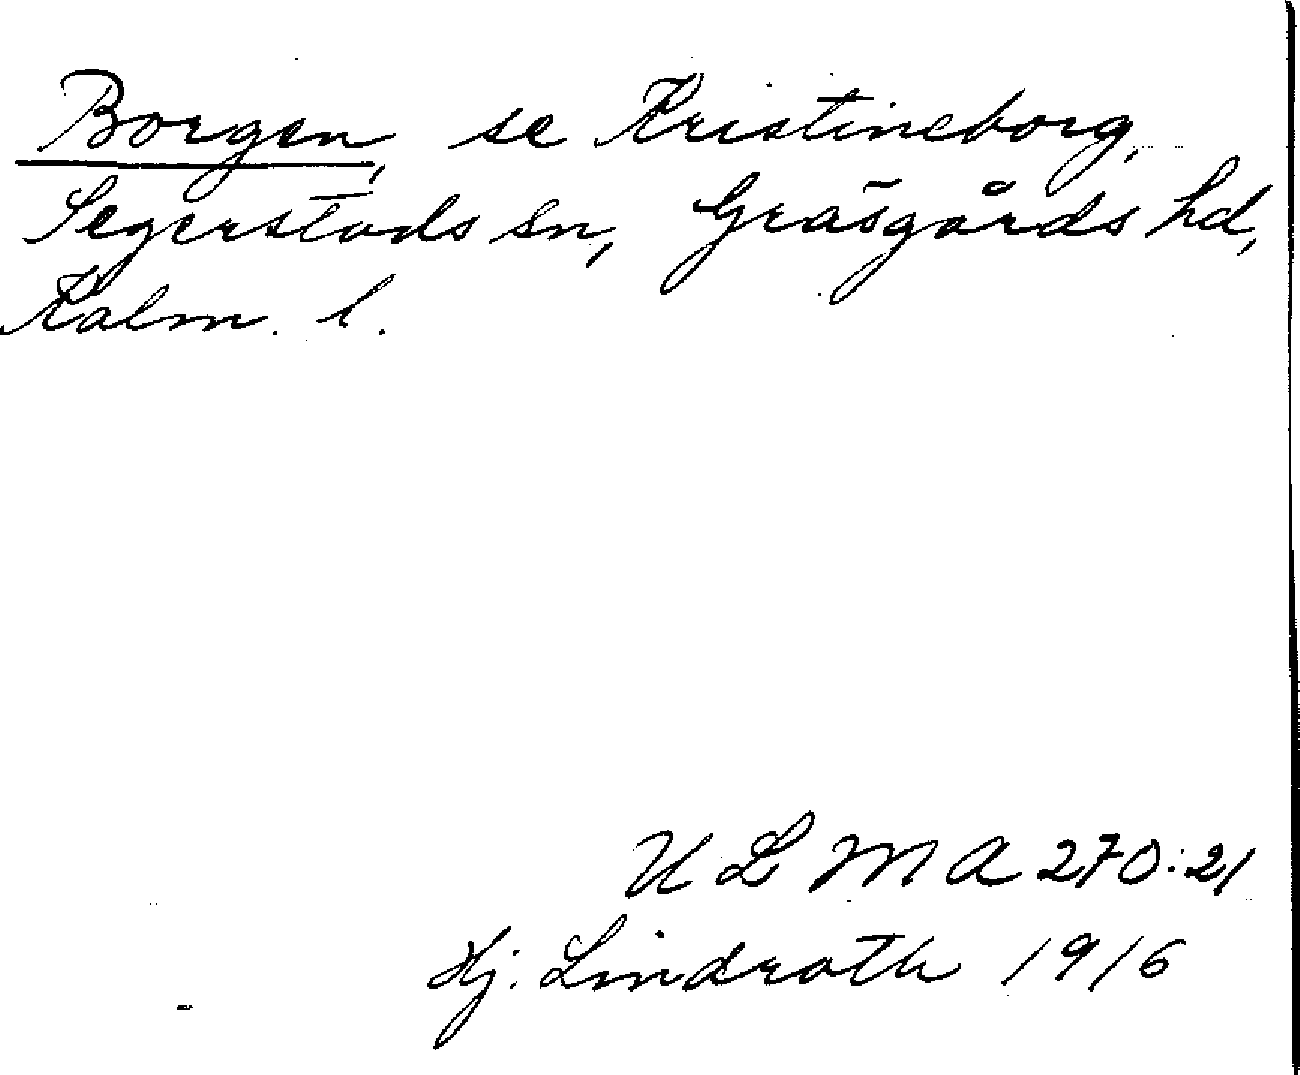 Borgen, se Kristineborg,
Segerstads sn, Gräsgårds hd,
Kalm. l.
ULMA 270:21
Hj. Lindroth 1916